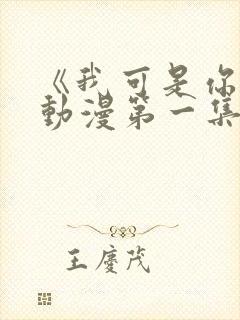 《我可是你
動漫第一集
王慶茂